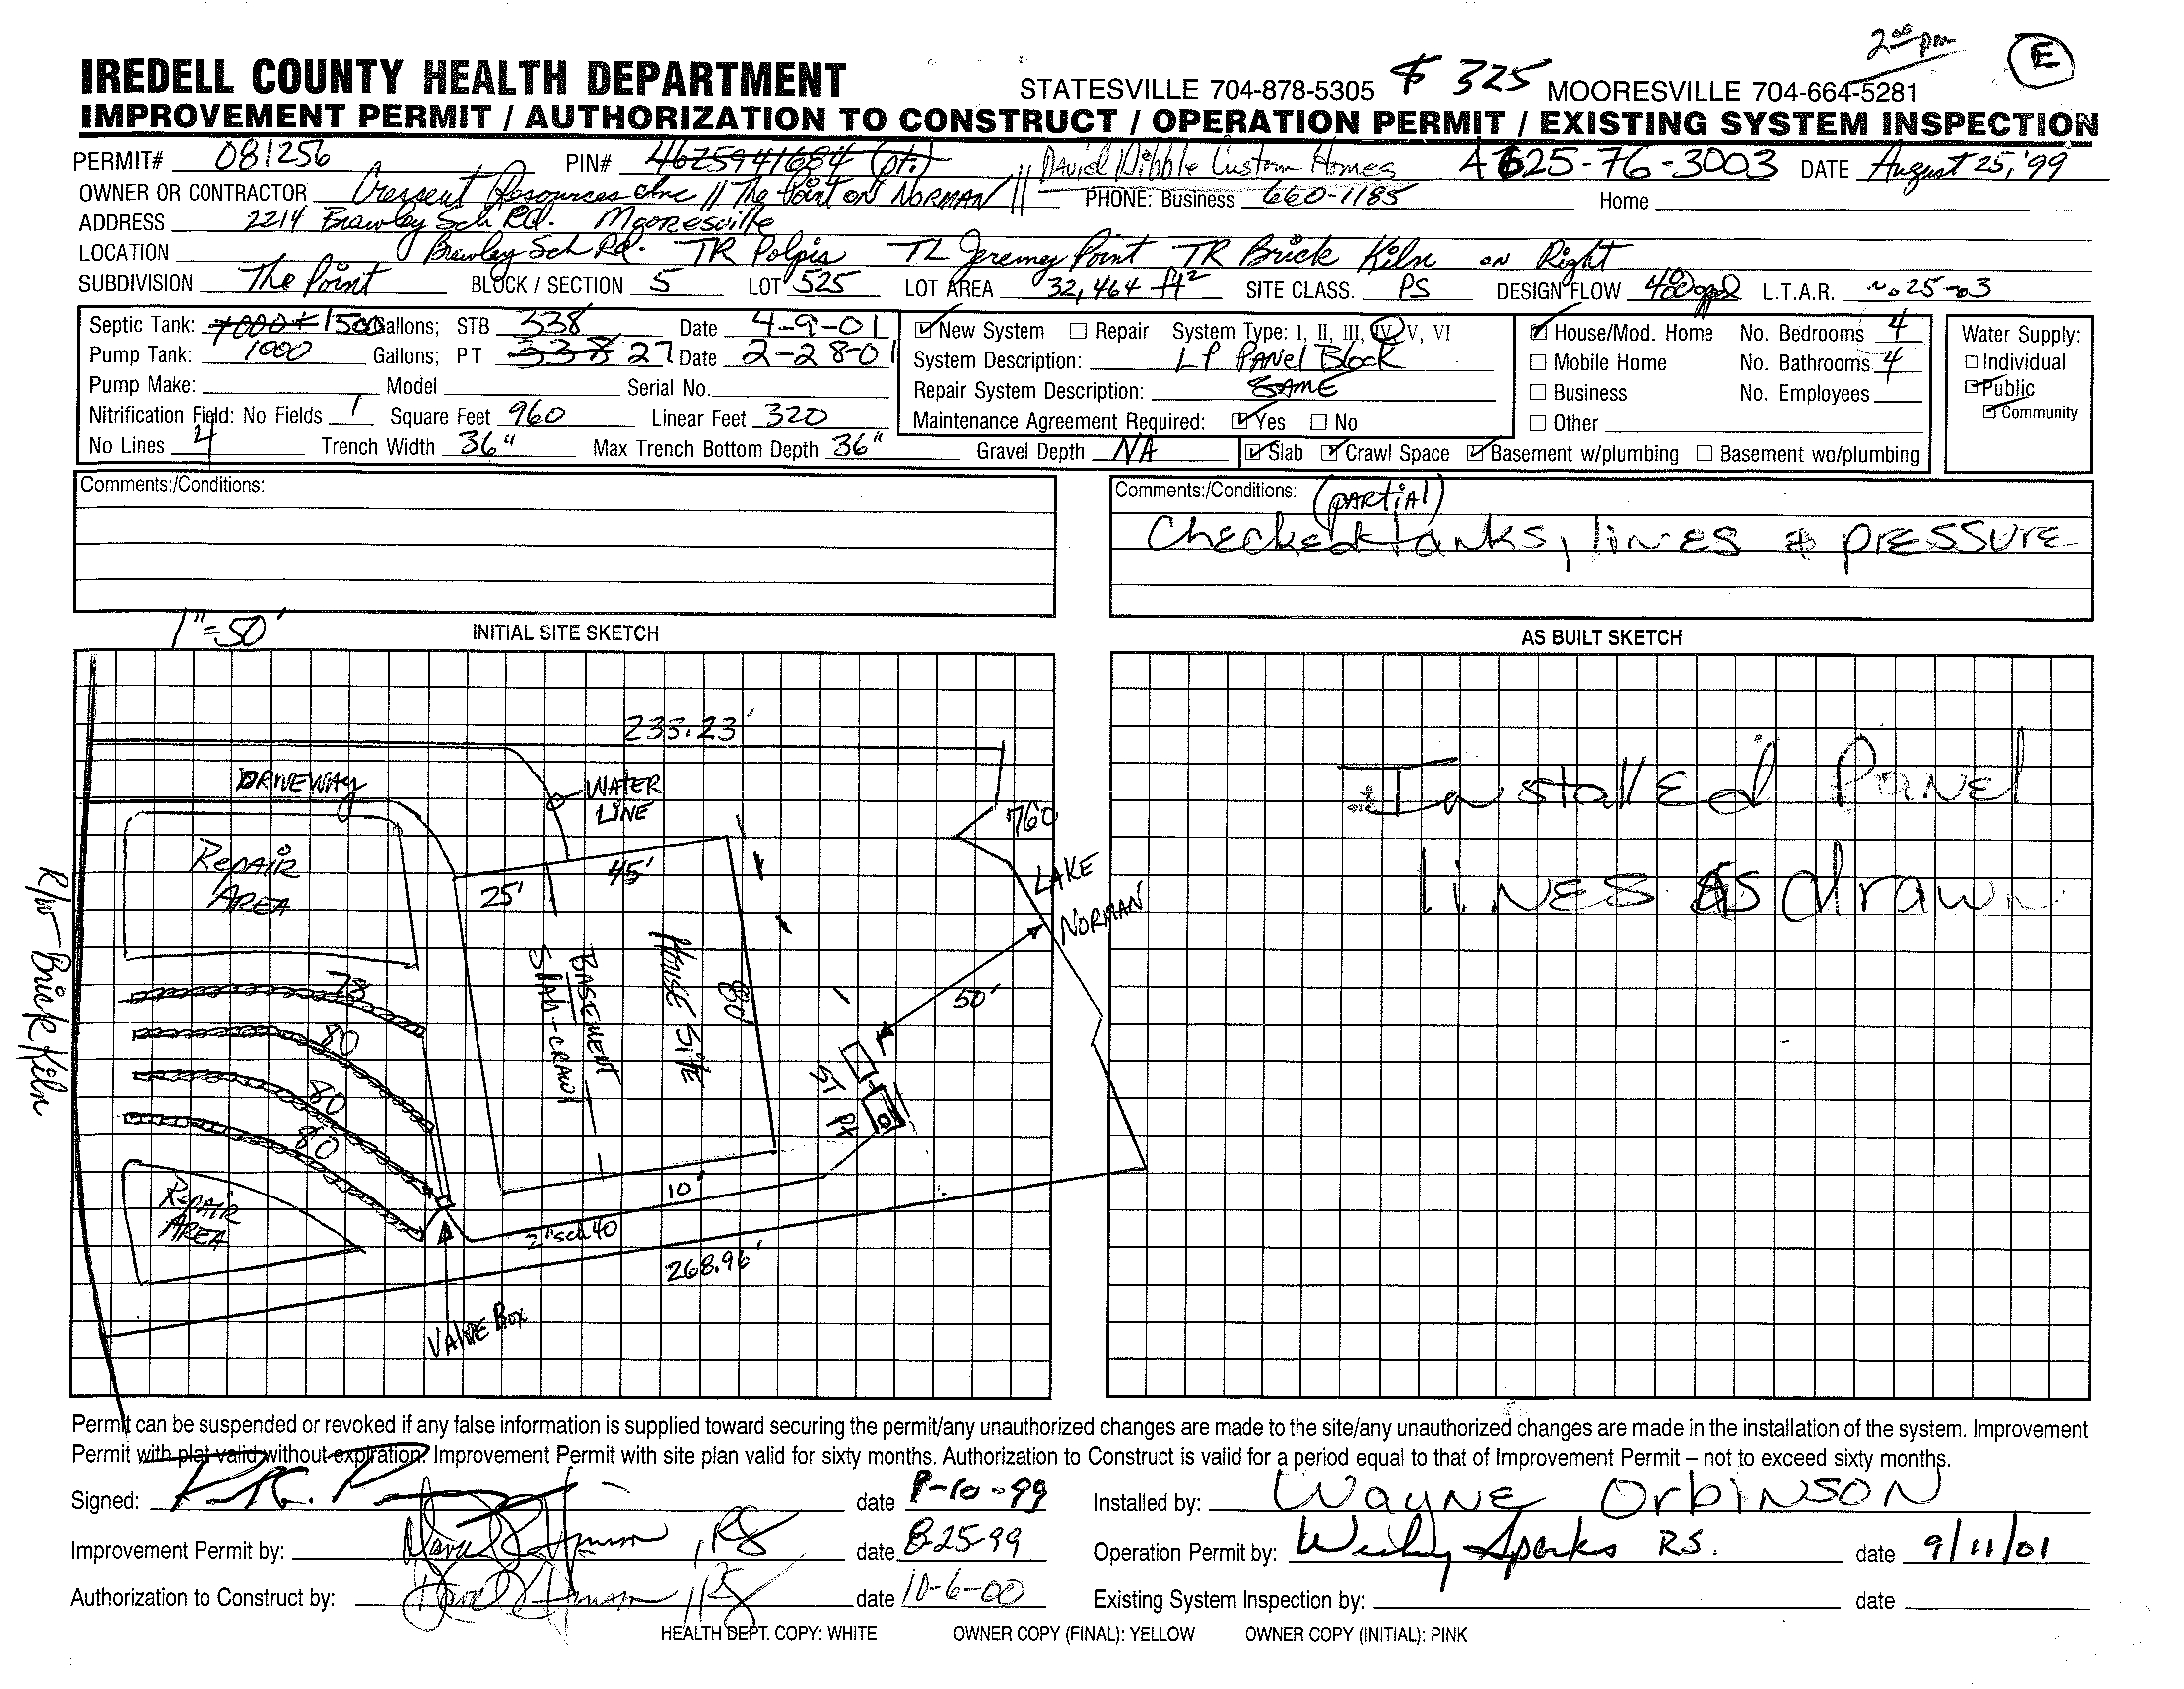 2:00 pm
E
IREDELL COUNTY HEALTH DEPARTMENT STATESVILLE 704-878-5305 $325 MOORESVILLE 704-664-5281
IMPROVEMENT PERMIT / AUTHORIZATION TO CONSTRUCT / OPERATION PERMIT / EXISTING SYSTEM INSPECTION
PERMIT# 081256 PIN# 4625941684 (pt.) David Dibble Custom Homes 4625-76-3003 DATE August 25, '99
OWNER OR CONTRACTOR Cressent Resources Inc // The Point on NORMAN // PHONE: Business 660-1185 Home
ADDRESS 2214 Brawley Sch Rd. Mooresville
LOCATION Brawley Sch Rd. TR Polpis TL Jeremey Point TR Brick Kiln on Right
SUBDIVISION The Point BLOCK / SECTION 5 LOT 525 LOT AREA 32,464 ft² SITE CLASS. PS DESIGN FLOW 480 gpd L.T.A.R.
Septic Tank: 1000+ 1500 Gallons; STB 338 Date 4-9-01 New System Repair System Type: I, II, III, IV, V, VI House/Mod. Home No. Bedrooms 4 Water Supply:
Pump Tank: 1000 Gallons; PT 338 27 Date 2-28-01 System Description: LP PANEL Block Mobile Home No. Bathrooms 4 Individual
Pump Make: Model Serial No. Repair System Description: SAME Business No. Employees Public
Nitrification Field: No Fields 1 Square Feet 960 Linear Feet 320 Maintenance Agreement Required: Yes No Other Community
No Lines 4 Trench Width 36" Max Trench Bottom Depth 36" Gravel Depth NA Slab Crawl Space Basement w/plumbing Basement wo/plumbing
Comments:/Conditions:
Comments:/Conditions: (PARTIAL)
Checked tanks, lines & pressure
1"=50' INITIAL SITE SKETCH
AS BUILT SKETCH
233.23'
DRIVEWAY
WATER LINE
760
REPAIR AREA
25'
45'
LAKE NORMAN
R/W-Brick Kiln
SLAB-CRAWL
BASEMENT
HOUSE SITE
80'
50'
78
80
80
80
ST
PT
REPAIR AREA
10'
2" sch 40
268.96'
VALVE BOX
Installed Panel
lines as drawn
Permit can be suspended or revoked if any false information is supplied toward securing the permit/any unauthorized changes are made to the site/any unauthorized changes are made in the installation of the system. Improvement
Permit with plat valid without expiration. Improvement Permit with site plan valid for sixty months. Authorization to Construct is valid for a period equal to that of Improvement Permit – not to exceed sixty months.
Signed: date 8-10-99 Installed by: Wayne Orbinson
Improvement Permit by: , RS date 8-25-99 Operation Permit by: Wesley Sparks R.S. date 9/11/01
Authorization to Construct by: , RS date 10-6-00 Existing System Inspection by: date
HEALTH DEPT. COPY: WHITE OWNER COPY (FINAL): YELLOW OWNER COPY (INITIAL): PINK